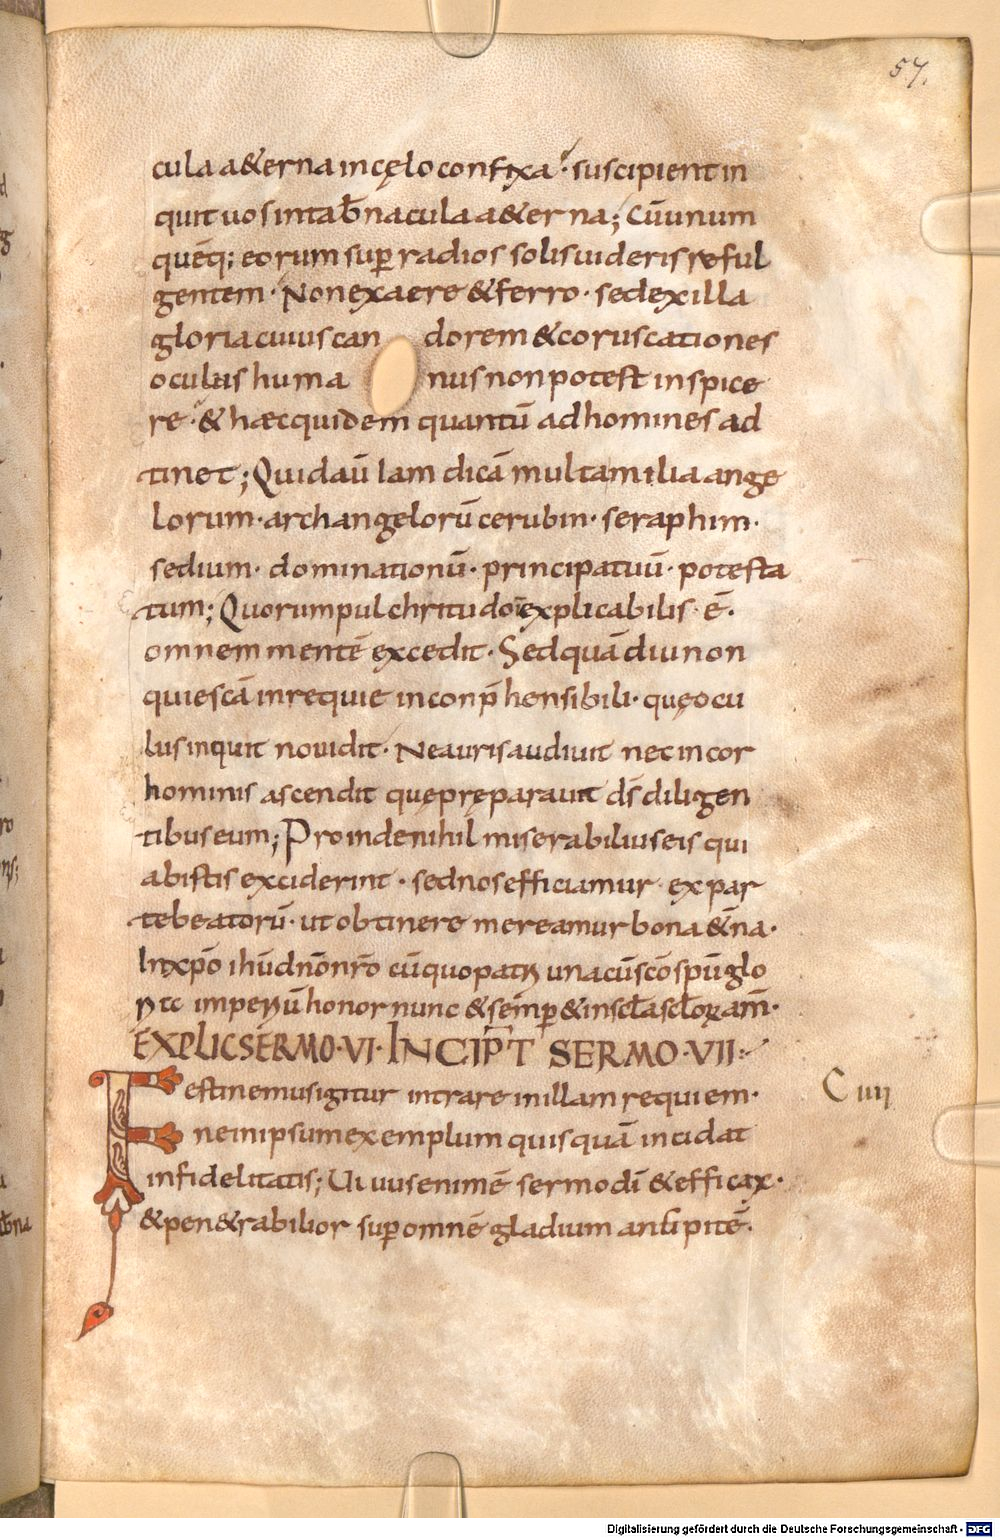 57.
cula a&erna incęlo confixa· suscipient in
quit uos intab̄nacula a&erna; Cūunum
quēq; eorum sup radios solis uideris reful
gentem· Non exaere &ferro· sed exilla
gloria cuius can dorem &coruscationes
oculus huma nus non potest inspice
re· & hæc quidem quantū ad homines ad
tinet; Quid aū Iam dicā multa milia ange
lorum· archangelorū cerubin· seraphim·
sedium· dominationū· principatuū· potesta
tum; Quorum pulchritudo inexplicabilis· ē·
omnem mentē excedit· Sed quādiu non
quiescā in requie inconp̄hensibili· quę ocu
lus inquit no uidit· Ne auris audiuit nec in cor
hominis ascendit quę pręparauit d̄s diligen
tibus eum; Proinde nihil miserabilius eis qui
ab istis exciderint· sed nos efficiamur ex par
te beatorū· ut obtinere mereamur bona &̄na·
In xp̄o ih̄u dn̄o nr̄o cū quo patri una cū sc̄o sp̄u glo
ria imperiū honor nunc & sēmp & in sc̄la sc̄lorum am̄·
EXPLIC SERMO·VI· INCIP̄T SERMO·VII:
Festinemus igitur intrare in illam requiem·
C iiii
ne in ipsum exemplum quis quā incidat
infidelitatis; Uiuus enim ē sermo dī &efficax·
& pen&rabilior sup omnē gladium ancipitē·
Digitalisierung gefördert durch die Deutsche Forschungsgemeinschaft - DFG